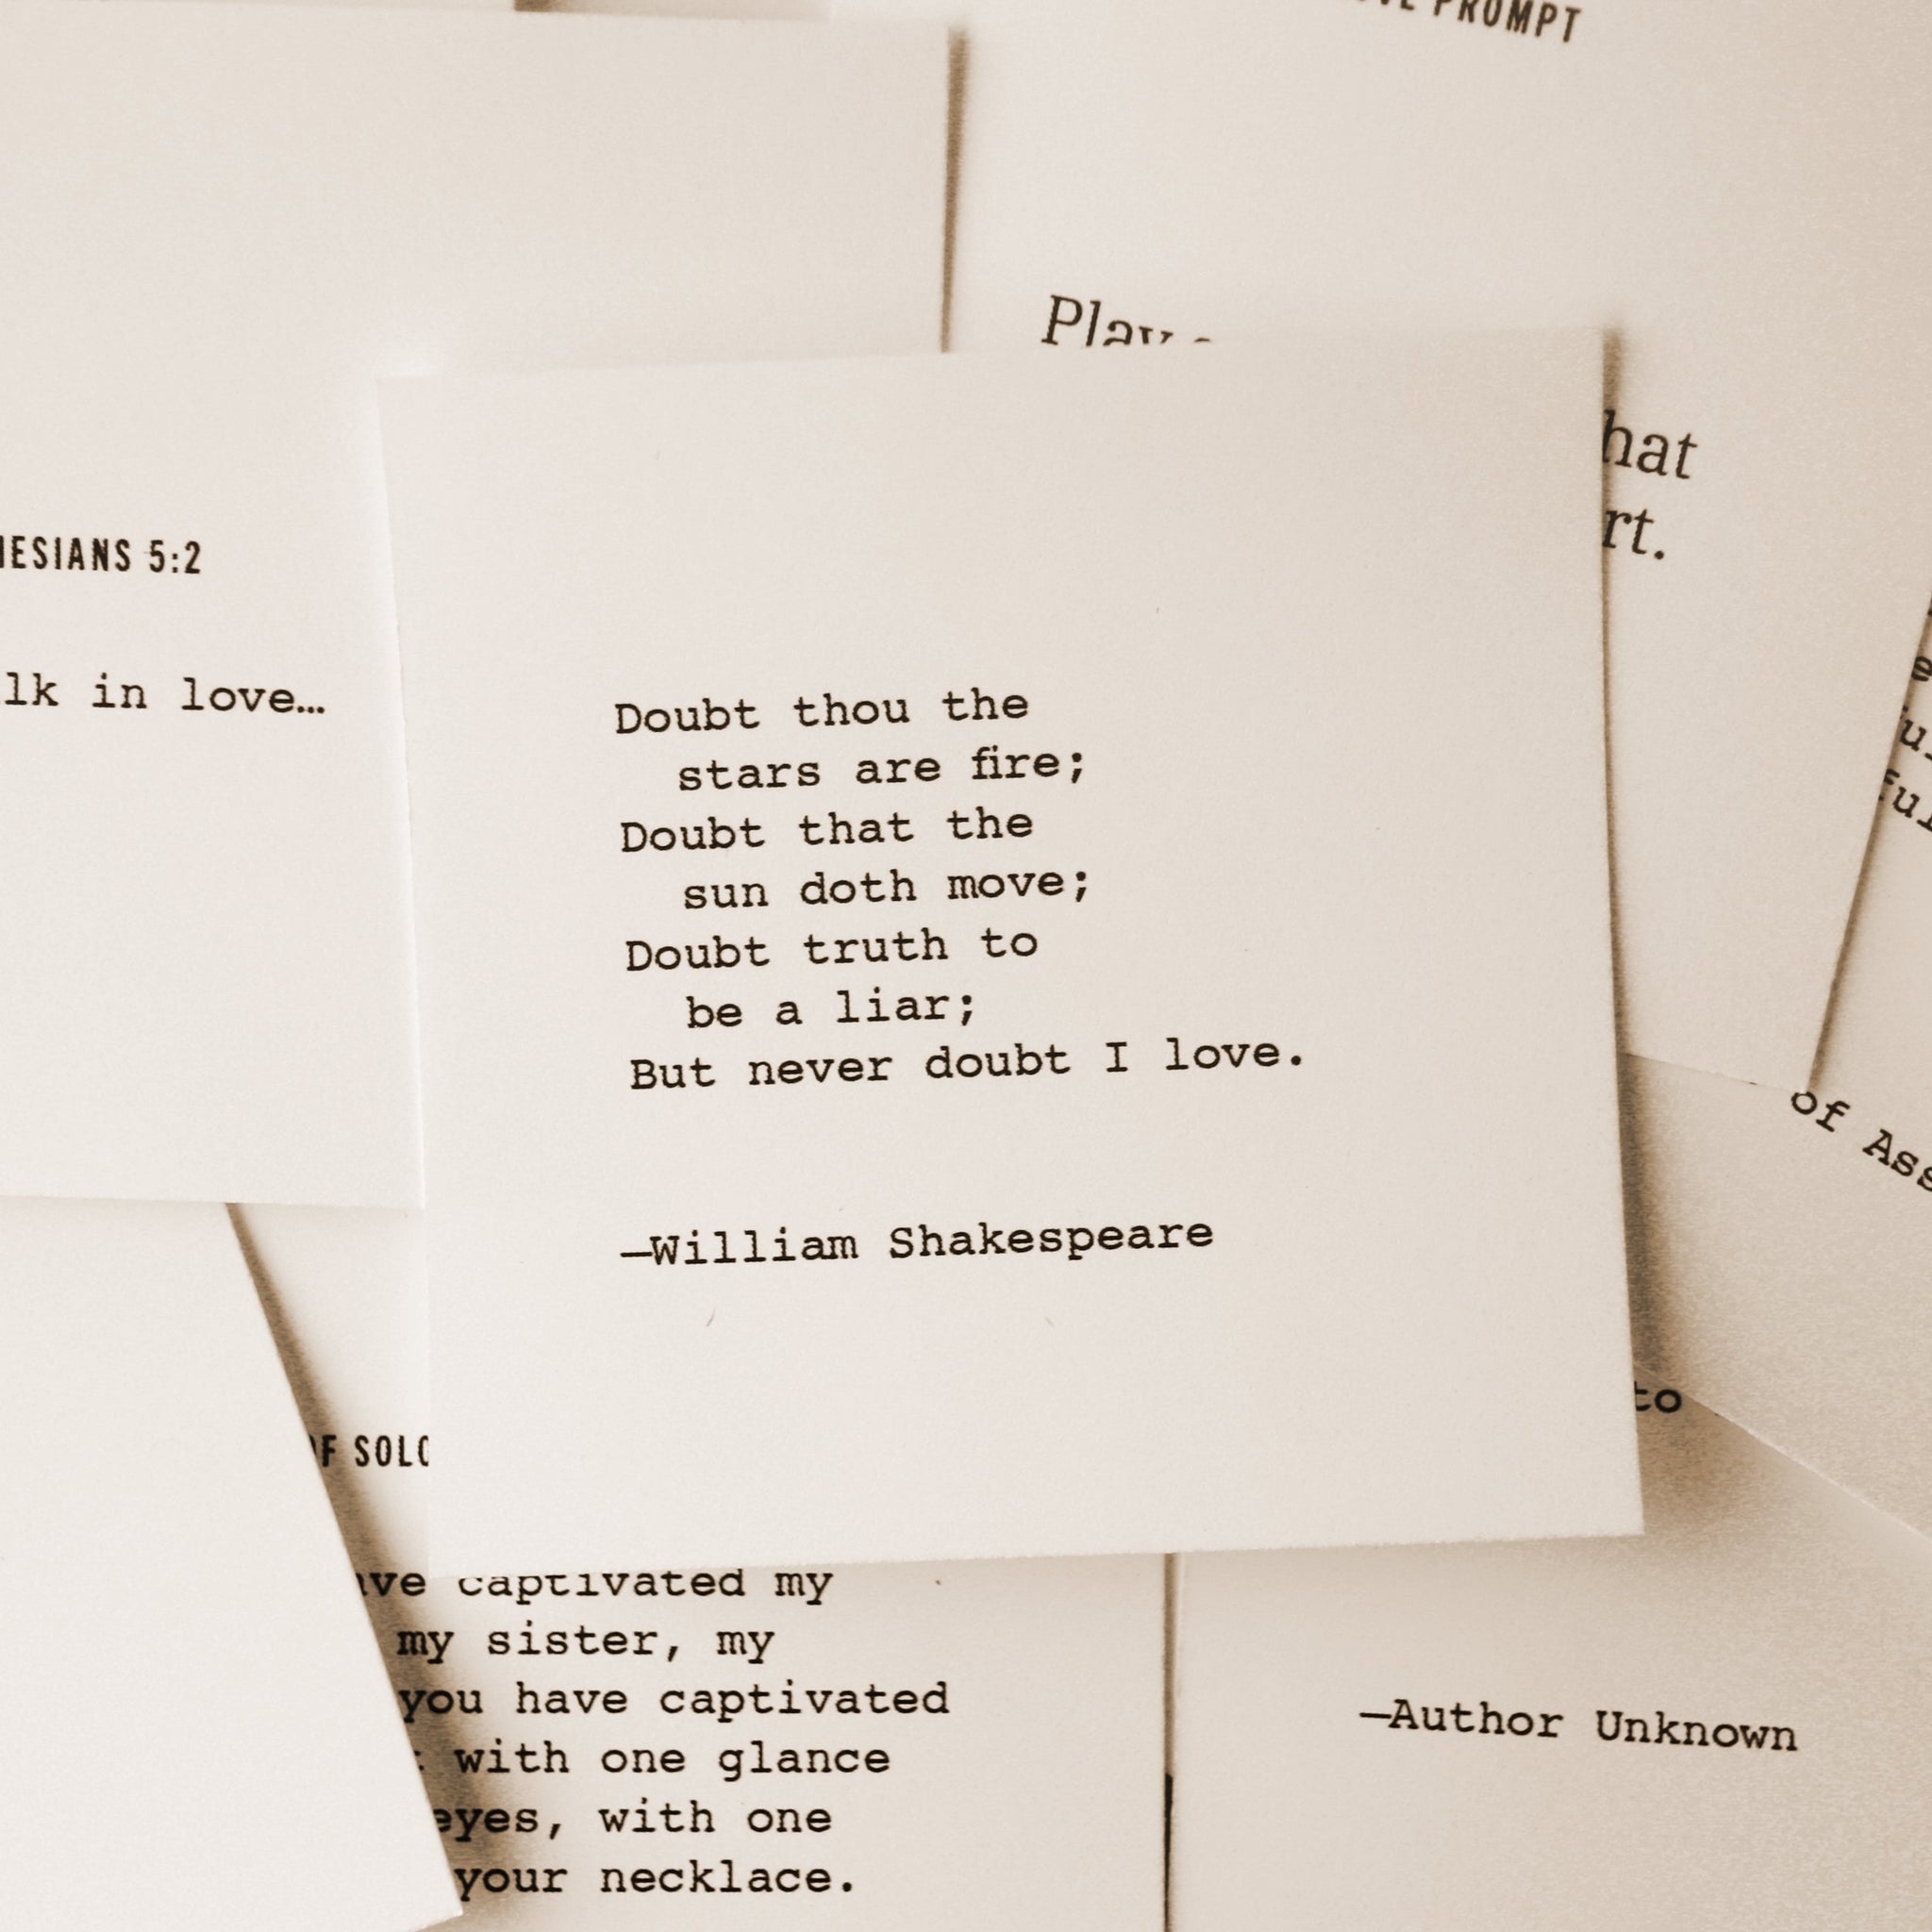 PROMPT
Play
hat
rt.
HESIANS 5:2
lk in love…
Doubt thou the
stars are fire;
Doubt that the
sun doth move;
Doubt truth to
be a liar;
But never doubt I love.
—William Shakespeare
of Ass
to
F SOLO
ve captivated my
my sister, my
you have captivated
with one glance
eyes, with one
your necklace.
—Author Unknown